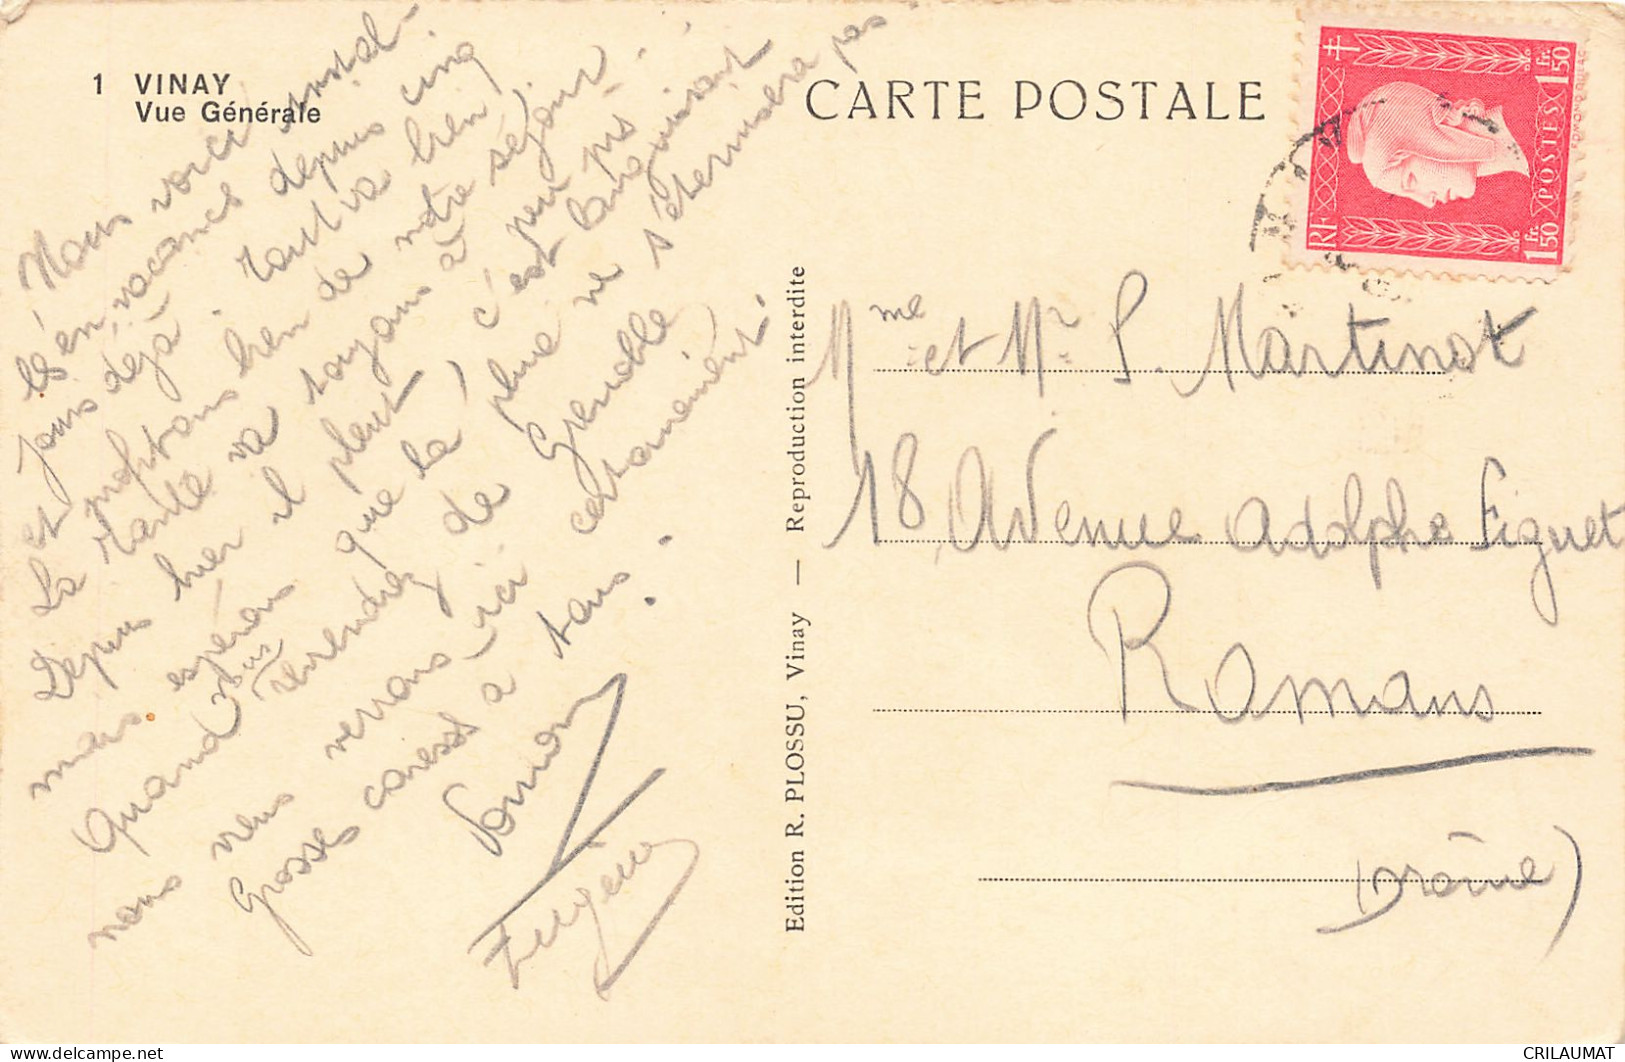 1 VINAY
Vue Générale
CARTE POSTALE
RF
POSTES
1 fr. 50
1 fr. 50
Nous voici instal-
lés en vacances depuis cinq
jours déjà. Tout va bien
et profitons bien de notre séjour.
La Tante va toujours à peu près.
Depuis hier il pleut, c'est languissant
mais espérons que la pluie ne s'éternisera pas
Quand vous reviendrez de Grenoble
nous vous verrons ici certainement.
Grosses caresses à tous.
Eugène
Edition R. PLOSSU, Vinay — Reproduction interdite
Mme et Mr S. Martinot
18, Avenue Adolphe Figuet
Romans
(Drôme)
CRILAUMAT